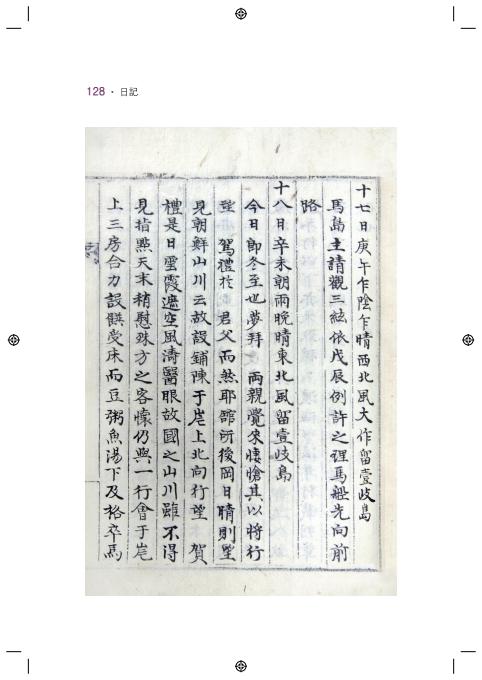 128 · 日記
十七日庚午乍陰乍晴西北風大作留壹岐島
馬島主請觀三絃依戊辰例許之裡馬船先向前
路
十八日辛未朝雨晩晴東北風留壹岐島
今日卽冬至也夢拜 兩親覺來悽愴其以將行
望 賀禮於 君父而然耶舘所後岡日晴則望
見朝鮮山川云故設鋪陳于岸上北向行望 賀
禮是日雲霞遮空風濤翳眼故國之山川雖不得
見指點天末稍慰殊方之客懷仍與一行會于岸
上三房合力設饌受床而豆粥魚湯下及格卒馬